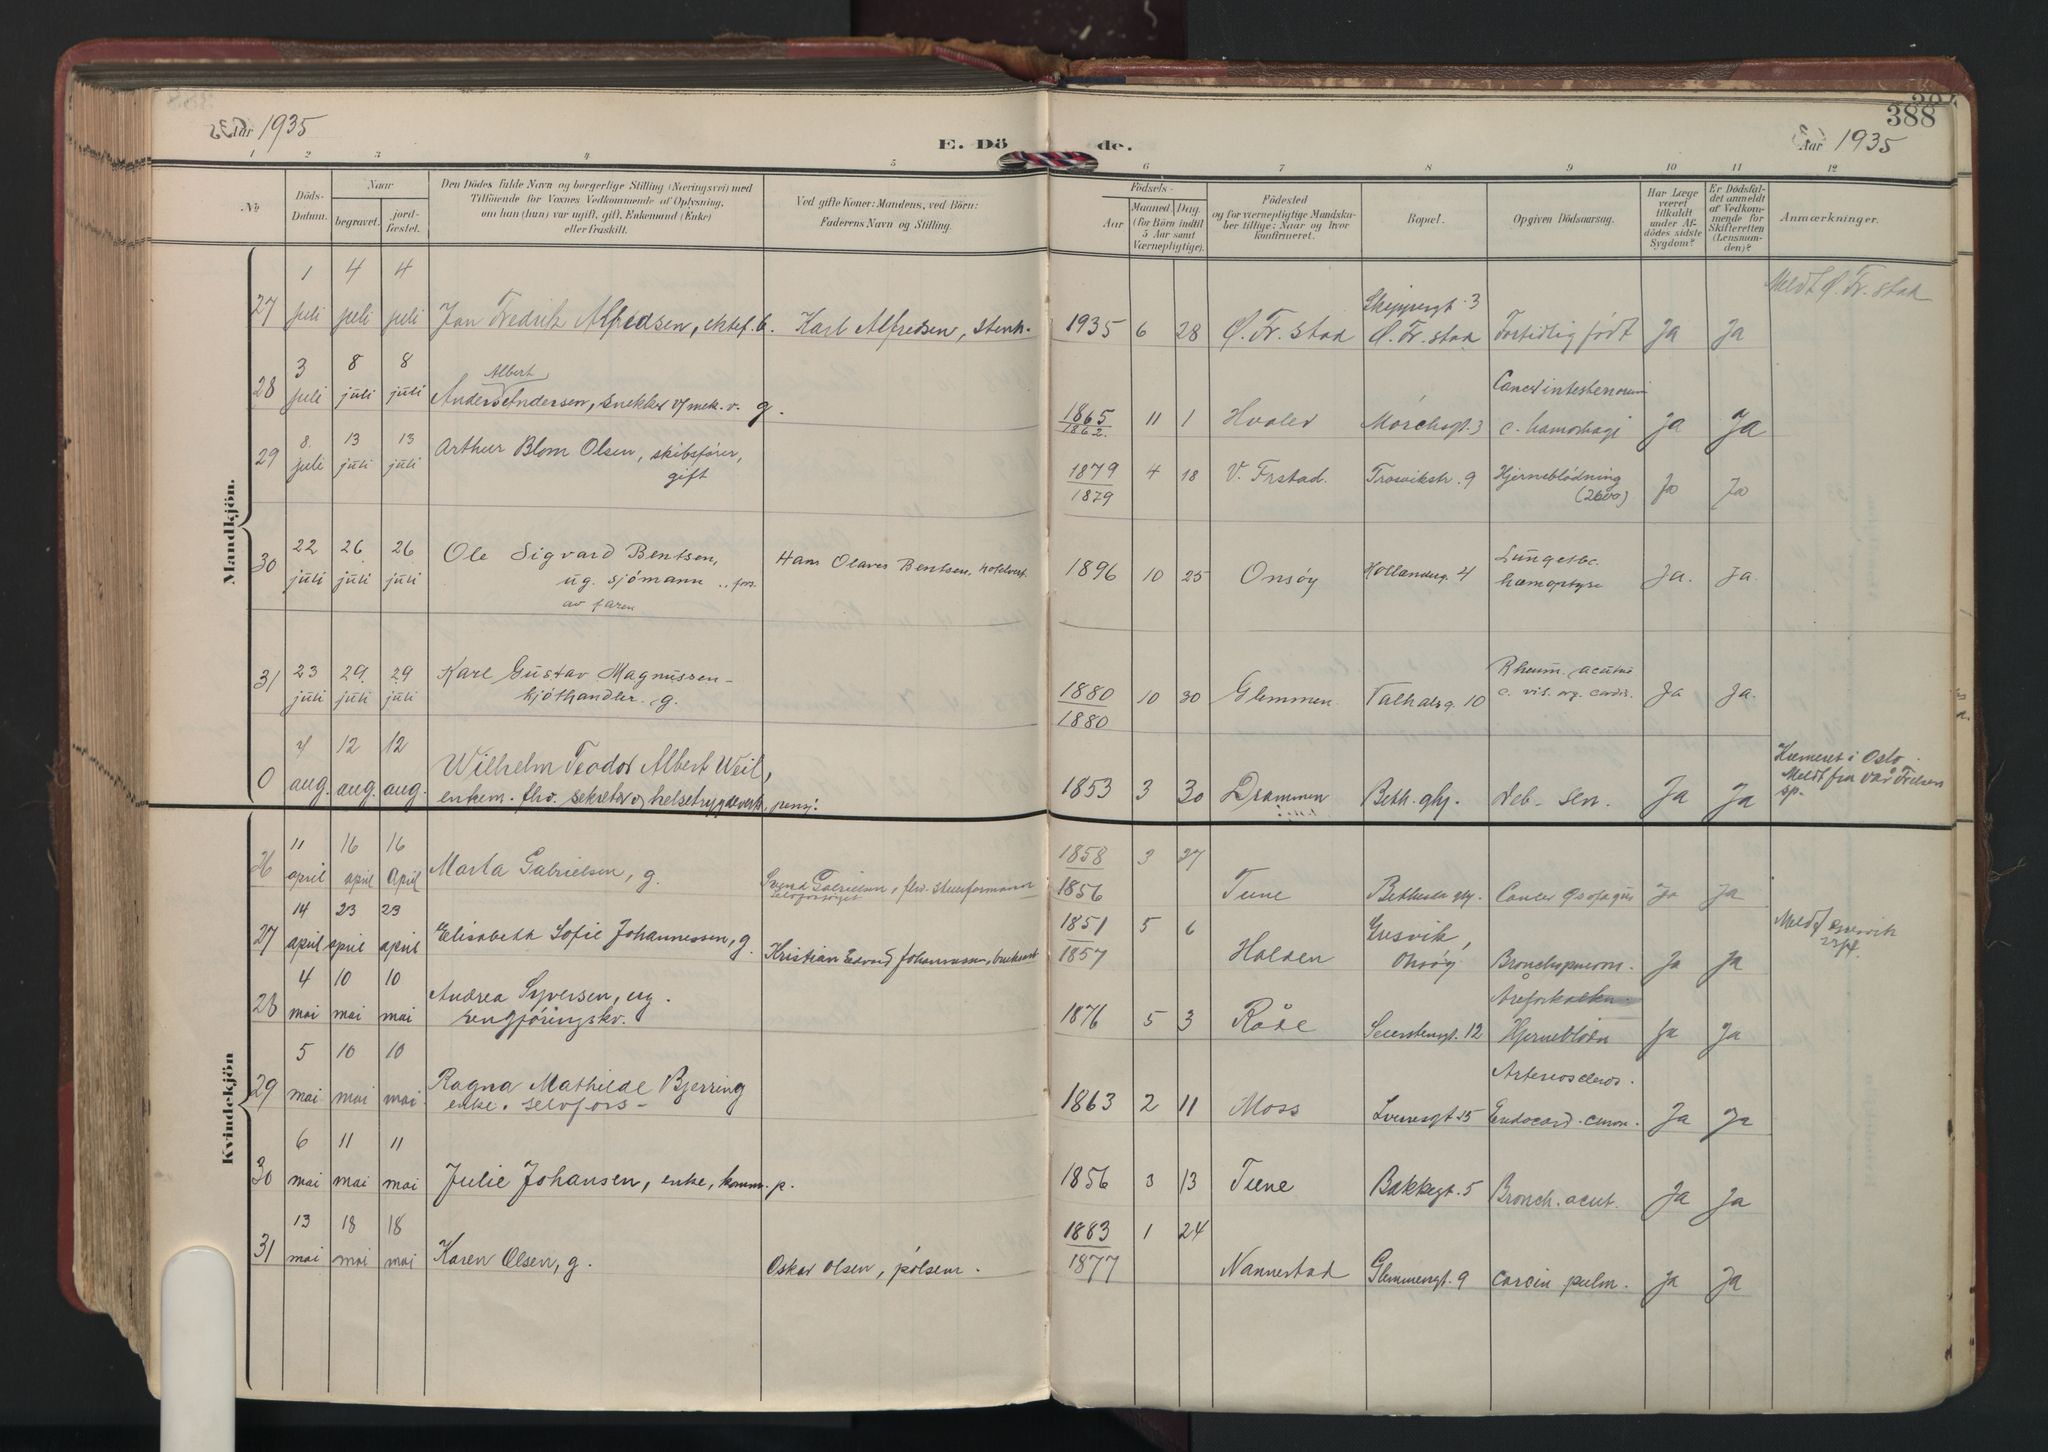 Aar 1935
E. Döde.
388
Aar 1935
1 2 3 4 5 6 7 8 9 10 11 12
No
Döds-Datum.
Naar
begravet.
jordfæstet.
Den Dödes fulde Navn og borgerlige Stilling (Næringsvei) med
Tilföiende for Voxnes Vedkommende af Oplysning,
om han (hun) var ugift, gift, Enkemand (Enke)
eller fraskilt.
Ved gifte Koner: Mandens, ved Börn:
Faderens Navn og Stilling.
Födsels-
Aar
Maaned. Dag.
(for Börn indtil
5 Aar samt
Værnepligtige).
Födested
og for værnepligtige Mandska-
ber tillige: Naar og hvor
konfirmeret.
Bopæl.
Opgiven Dödsaarsag.
Har Læge
været
tilkaldt
under Af-
dödes sidste
Sygdom?
Er Dödsfal-
det anmeldt
af Vedkom-
mende for
Skifteretten
(Lensman-
den)?
Anmærkninger.
Mandkjön.
27 1 juli 4 juli 4 juli Jan Fredrik Alfredsen, ektef. b. Karl Alfredsen, stenh. 1935 6 28 Ø. Fr. stad Skippergt. 3 Ø. Fr. stad Fortidlig født Ja Ja Meldt Ø. Fr. stad
28 3 juli 8 juli 8 juli Anders Albert Andersen, snekker v/ mek. v. g. 1865 1862. 11 1 Hvaler Mørchsgt. 3 Cancer intestenorum c. hæmorhagi Ja Ja
29 8. juli 13 juli 13 juli Arthur Blom Olsen, skibsfører, gift 1879 1879 4 18 V. Frstad. Trosvikstr. 9 Hjerneblödning Ja Ja
30 22 juli 26 juli 26 juli Ole Sigvard Bentsen, ug. sjömann .. fors. av faren Hans Olaves Bentsen, 1896 10 25 Onsöy Hollenderg. 4 Lungetbc. hæmoptyse Ja. Ja.
31 23 juli 29. juli 29 juli Karl Gustav Magnussen - kjöthandler. g. 1880 1880 10 30 Glemmen. Valhalsg. 10 Rheum. acutus c. vis. org. cordis. Ja Ja.
0 4 aug. 12 aug. 12 aug. Wilhelm Teodor Albert Weil, enkem. fhv. sekretær og helsetrygdeverk, pensj. 1853 3 30 Drammen Beth. ghj. deb. sen. Ja Ja Kremert i Oslo. Meldt fra Vår Frelsers sp.
Kvindekjön
26 11 april 16 april 16 april Marta Gabrielsen, g. Svend Gabrielsen, fhv. stuerformann 1858 1856 3 27 Tune Bethesda ghj. Cancer Øsofagus Ja Ja
27 14 april 23 april 23 april Elisabeth Sofie Johannessen, g. Kristian Edvard Johannessen, 1851 1857 5 6 Halden Gresvik, Onsöy Bronchopneum. Ja Ja Meldt Gresvik
28 4 mai 10 mai 10 mai Andrea Syversen, ug. rengjöringskv. 1876 5 3 Råde Seierstengt. 12 Åreforkalkn. Hjerneblödn Ja Ja
29 5 mai 10 mai 10 mai Ragna Mathilde Bjerring enke. selvfors- 1863 2 11 Moss 15 Arterioscleros. Endocard. chron. Ja Ja
30 6 mai 11 mai 11 mai Julie Johansen, enke, komm. p. 1856 3 13 Tune Bakkegt. 5 Bronch. acut. Ja Ja
31 13 mai 18 mai 18 mai Karen Olsen, g. Oskar Olsen, pölsem. 1883 1877 1 24 Nannestad Glemmengt. 9 Carcin pulm. Ja Ja